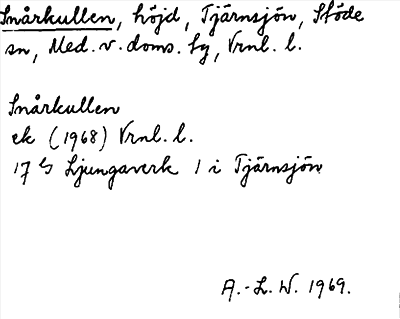 Snårkullen, höjd, Tjärnsjön, Stöde
sn, Med. v. doms. fg, Vrnl. l.
Snårkullen
ek (1968) Vrnl. l.
17 G Ljungaverk 1 i Tjärnsjön
A.-L. W. 1969.